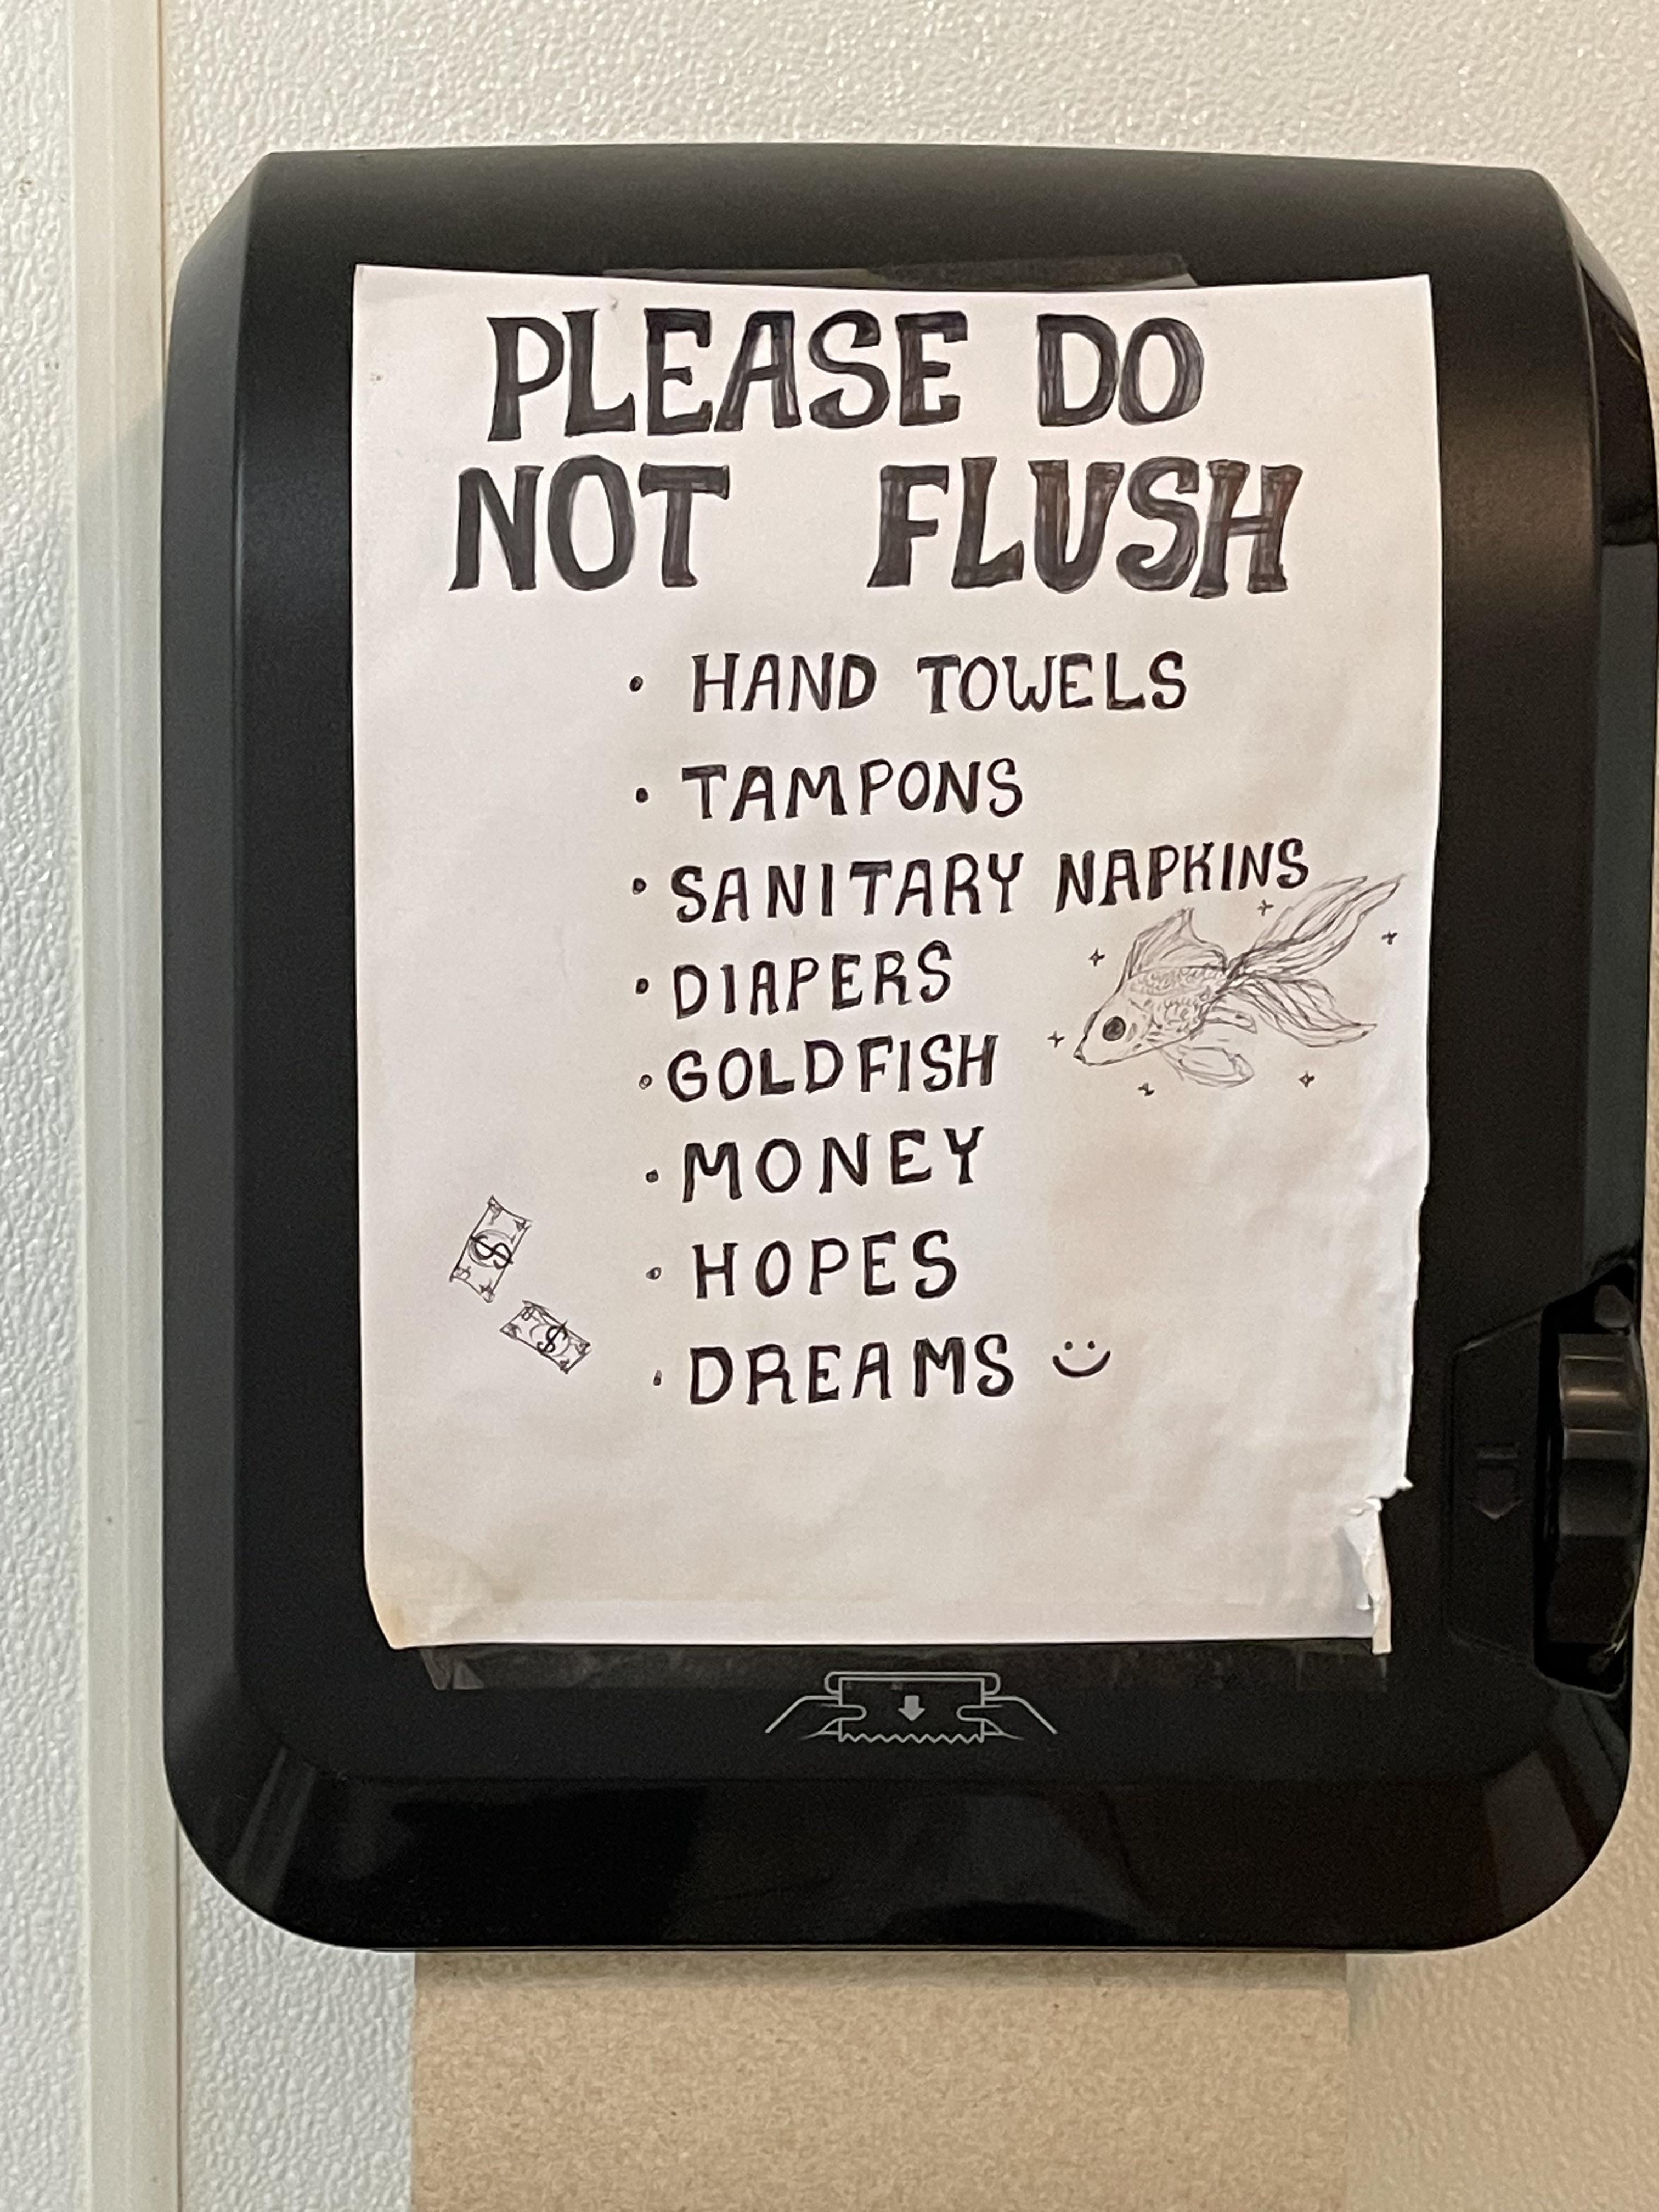 PLEASE DO
NOT FLUSH
• HAND TOWELS
• TAMPONS
• SANITARY NAPKINS
• DIAPERS
• GOLDFISH
• MONEY
• HOPES
• DREAMS
$
$